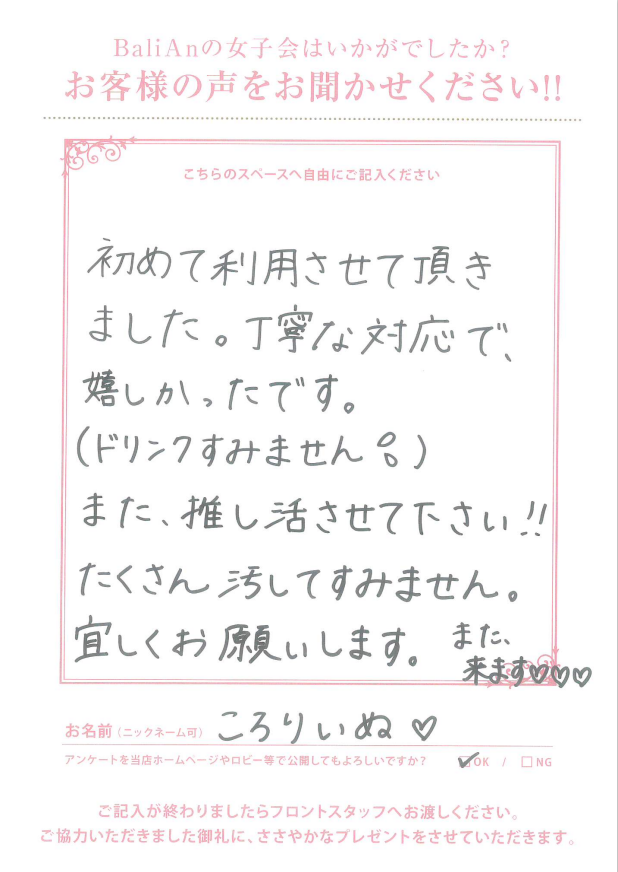 BaliAnの女子会はいかがでしたか?
お客様の声をお聞かせください!!
こちらのスペースへ自由にご記入ください
初めて利用させて頂き
ました。丁寧な対応で、
嬉しかったです。
(ドリンクすみません)
また、推し活させて下さい!!
たくさん汚してすみません。
宜しくお願いします。また、
来ます♡♡♡
お名前(ニックネーム可) ころりいぬ♡
アンケートを当店ホームページやロビー等で公開してもよろしいですか? ☑OK / □NG
ご記入が終わりましたらフロントスタッフへお渡しください。
ご協力いただきました御礼に、ささやかなプレゼントをさせていただきます。